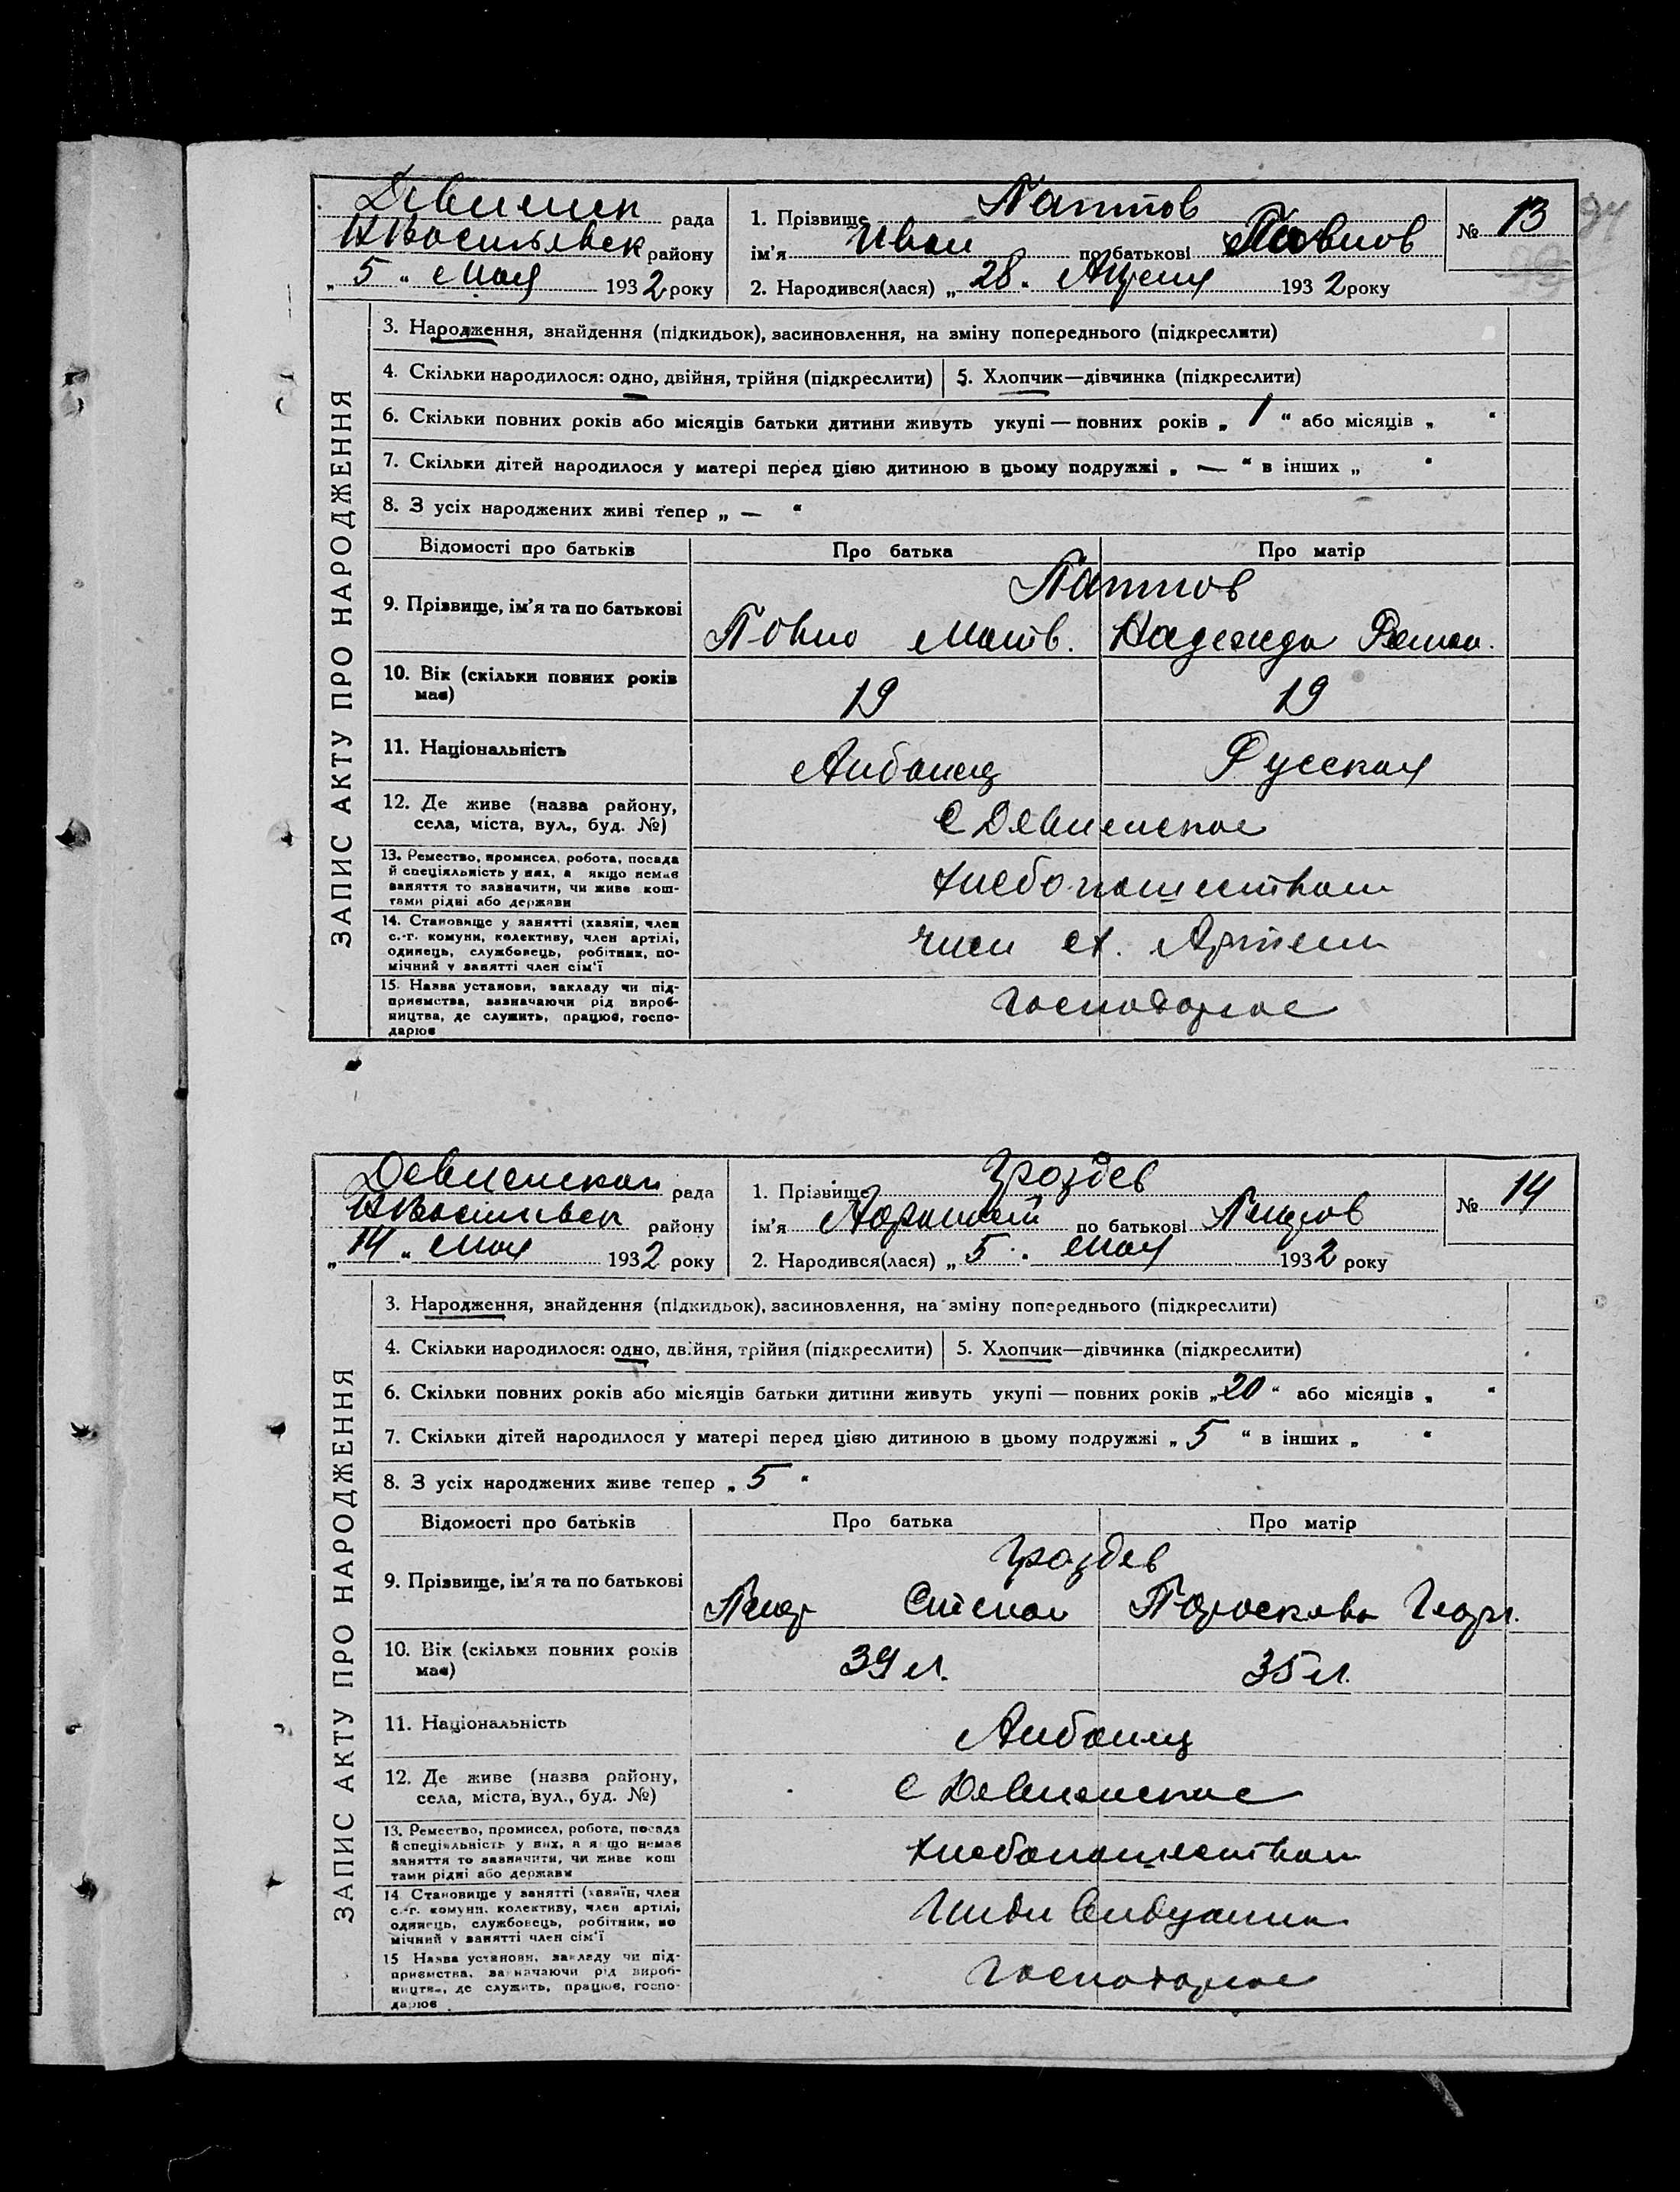 Девненск рада
Н Васильевск району
„ 5 “ мая 1932 року
1. Прізвище Паптов
ім’я Иван по батькові Павлов
2. Народився(лася) „ 28 “ Апреля 1932 року
№ 13
94
ЗАПИС АКТУ ПРО НАРОДЖЕННЯ
3. Народження, знайдення (підкидьок), засиновлення, на зміну попереднього (підкреслити)
4. Скільки народилося: одно, двійня, трійня (підкреслити) 5. Хлопчик—дівчинка (підкреслити)
6. Скільки повних років або місяців батьки дитини живуть укупі — повних років „ 1 “ або місяців „ “
7. Скільки дітей народилося у матері перед цією дитиною в цьому подружжі „ — “ в інших „ “
8. З усіх народжених живі тепер „ — “
Відомості про батьків Про батька Про матір
9. Прізвище, ім’я та по батькові
Паптов
Матв. Надежда
10. Вік (скільки повних років має)
19 19
11. Національність
Албанец Русская
12. Де живе (назва району, села, міста, вул., буд. №)
С Девненское
13. Ремество, промисел, робота, посада
й спеціяльність у них, а якщо немає
заняття то зазначити, чи живе кош-
тами рідні або держави
хлебопашеством
14. Становище у занятті (хазяїн, член
с.-г. комуни, колективу, член артілі,
одинець, службовець, робітник, по-
мічний у занятті член сім’ї
член сх. Артели
15. Назва установи, закладу чи під-
приємства, зазначаючи рід вироб-
ництва, де служить, працює, госпо-
дарює
Девненской рада
Н Васильевск району
„ 14 “ мая 1932 року
1. Прізвище Гроздев
ім’я по батькові Петров
2. Народився(лася) „ 5 “ мая 1932 року
№ 14
ЗАПИС АКТУ ПРО НАРОДЖЕННЯ
3. Народження, знайдення (підкидьок), засиновлення, на зміну попереднього (підкреслити)
4. Скільки народилося: одно, двійня, трійня (підкреслити) 5. Хлопчик—дівчинка (підкреслити)
6. Скільки повних років або місяців батьки дитини живуть укупі — повних років „ 20 “ або місяців „ “
7. Скільки дітей народилося у матері перед цією дитиною в цьому подружжі „ 5 “ в інших „ “
8. З усіх народжених живе тепер „ 5 “
Відомості про батьків Про батька Про матір
9. Прізвище, ім’я та по батькові
Гроздев
Петр Степан Пораскева Георг.
10. Вік (скільки повних років має)
39 л. 35 л.
11. Національність
Албанец
12. Де живе (назва району, села, міста, вул., буд. №)
С Девненское
13. Ремество, промисел, робота, посада
й спеціяльність у них, а якщо немає
заняття то зазначити, чи живе кош
тами рідні або держави
хлебопашеством
14. Становище у занятті (хазяїн, член
с.-г. комуни, колективу, член артілі,
одинець, службовець, робітник, по
мічний у занятті член сім’ї
15 Назва установи, закладу чи під-
приємства, зазначаючи рід вироб-
ництва, де служить, працює, госпо-
дарює